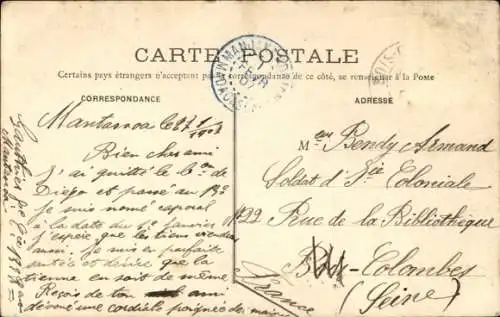 CARTE POSTALE
Certains pays étrangers n'acceptant pas la correspondance de ce côté, se renseigner à la Poste
CORRESPONDANCE
Mantasoa le 27
Bien cher ami
J'ai quitté le
Diego et passé au 13e
je suis nomé caporal
à la date du 1er janvier
j'espère que les tiens viendra
aussi. Je suis en parfaite
santé et désire que la
tienne en soit de même
Reçois de ton ami
dévoué une cordiale poignée de main
ADRESSE
Bendy Armand
Soldat d'Ie Coloniale
22 Rue de la Bibliothèque
Bois-Colombes
(Seine)
France